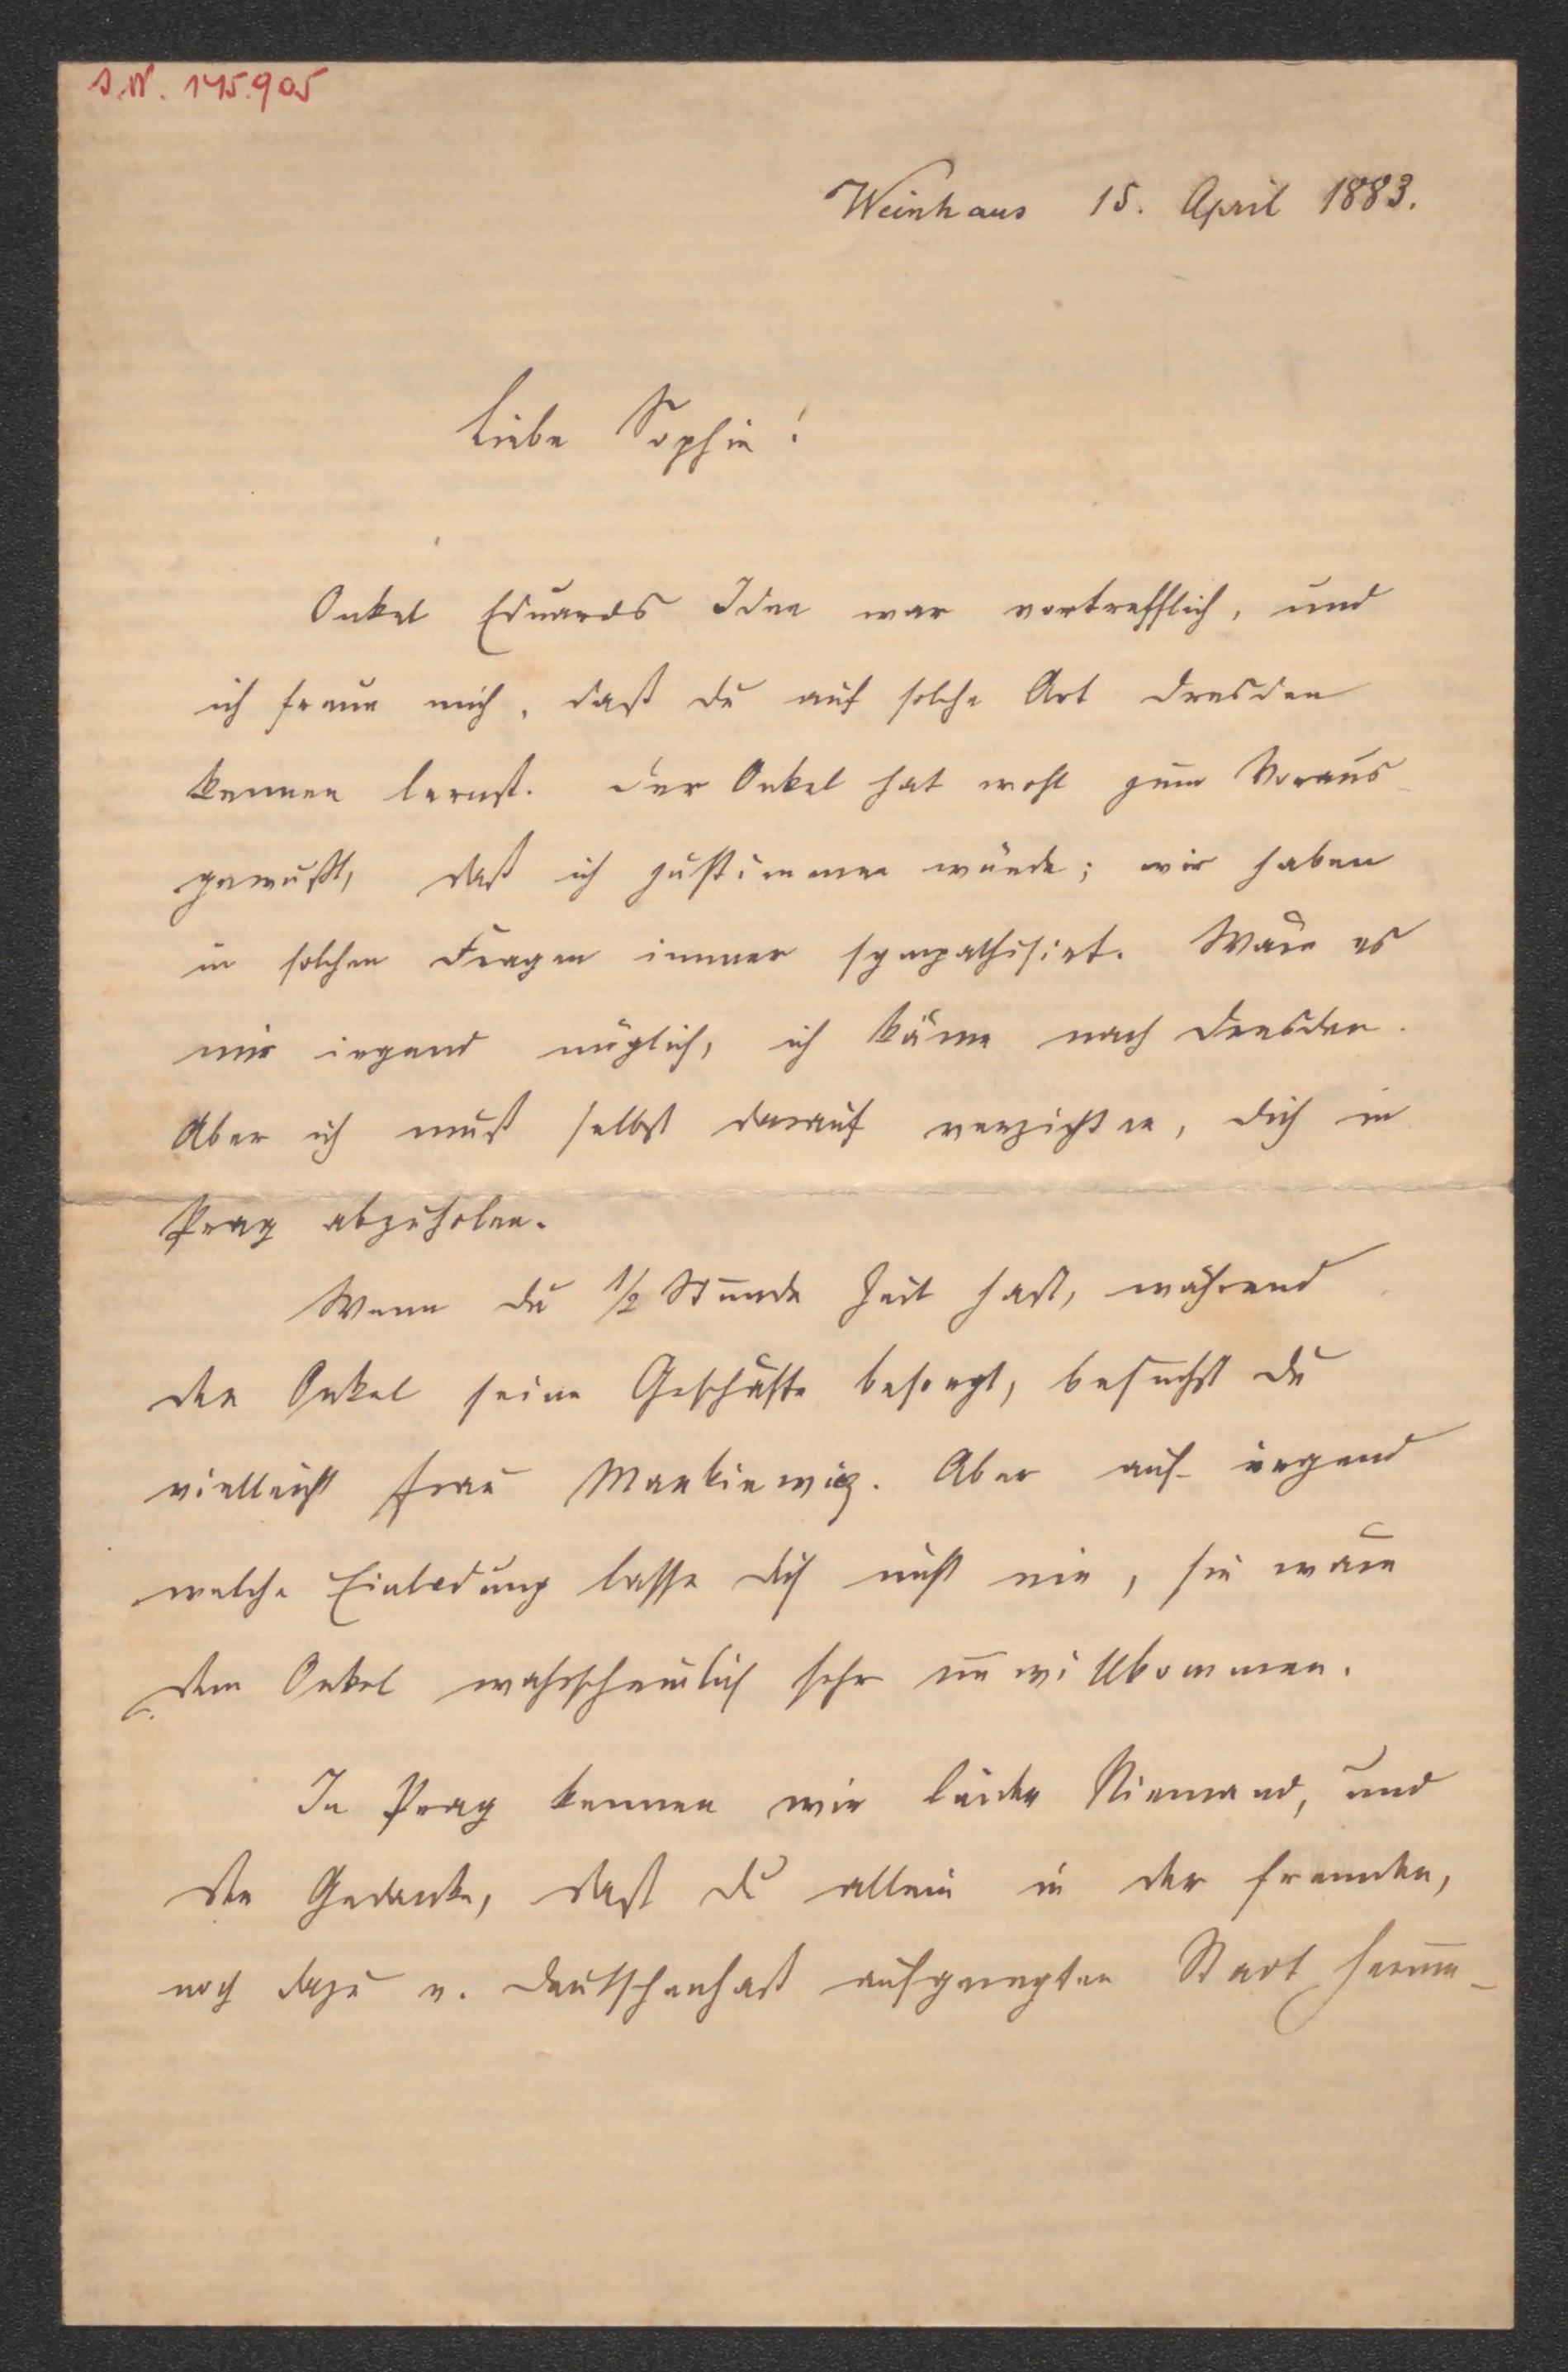 J.N. 145.905
Weinhaus 15. April 1883.
Liebe Sophie!
Onkel Eduards Idee war vortrefflich, und
ich freue mich, daß du auf solche Art Dresden
kennen lernst. Der Onkel hat wohl zum Voraus
gewußt, daß ich zustimmen würde; wir haben
in solchen Fragen immer sympathisirt. Wäre es
mir irgend möglich, ich käme nach Dresden.
Aber ich muß selbst darauf verzichten, dich in
Prag abzuholen.
Wenn du 1/2 Stunde Zeit hast, während
der Onkel seine Geschäfte besorgt, besuchst du
vielleicht Frau Mankiewicz. Aber auf irgend
welche Einladung lasse dich nicht ein, sie wäre
dem Onkel wahrscheinlich sehr unwillkommen.
In Prag kennen wir leider Niemand, und
der Gedanke, daß du allein in der fremden,
noch dazu v. Deutschenhaß aufgeregten Stadt herum-